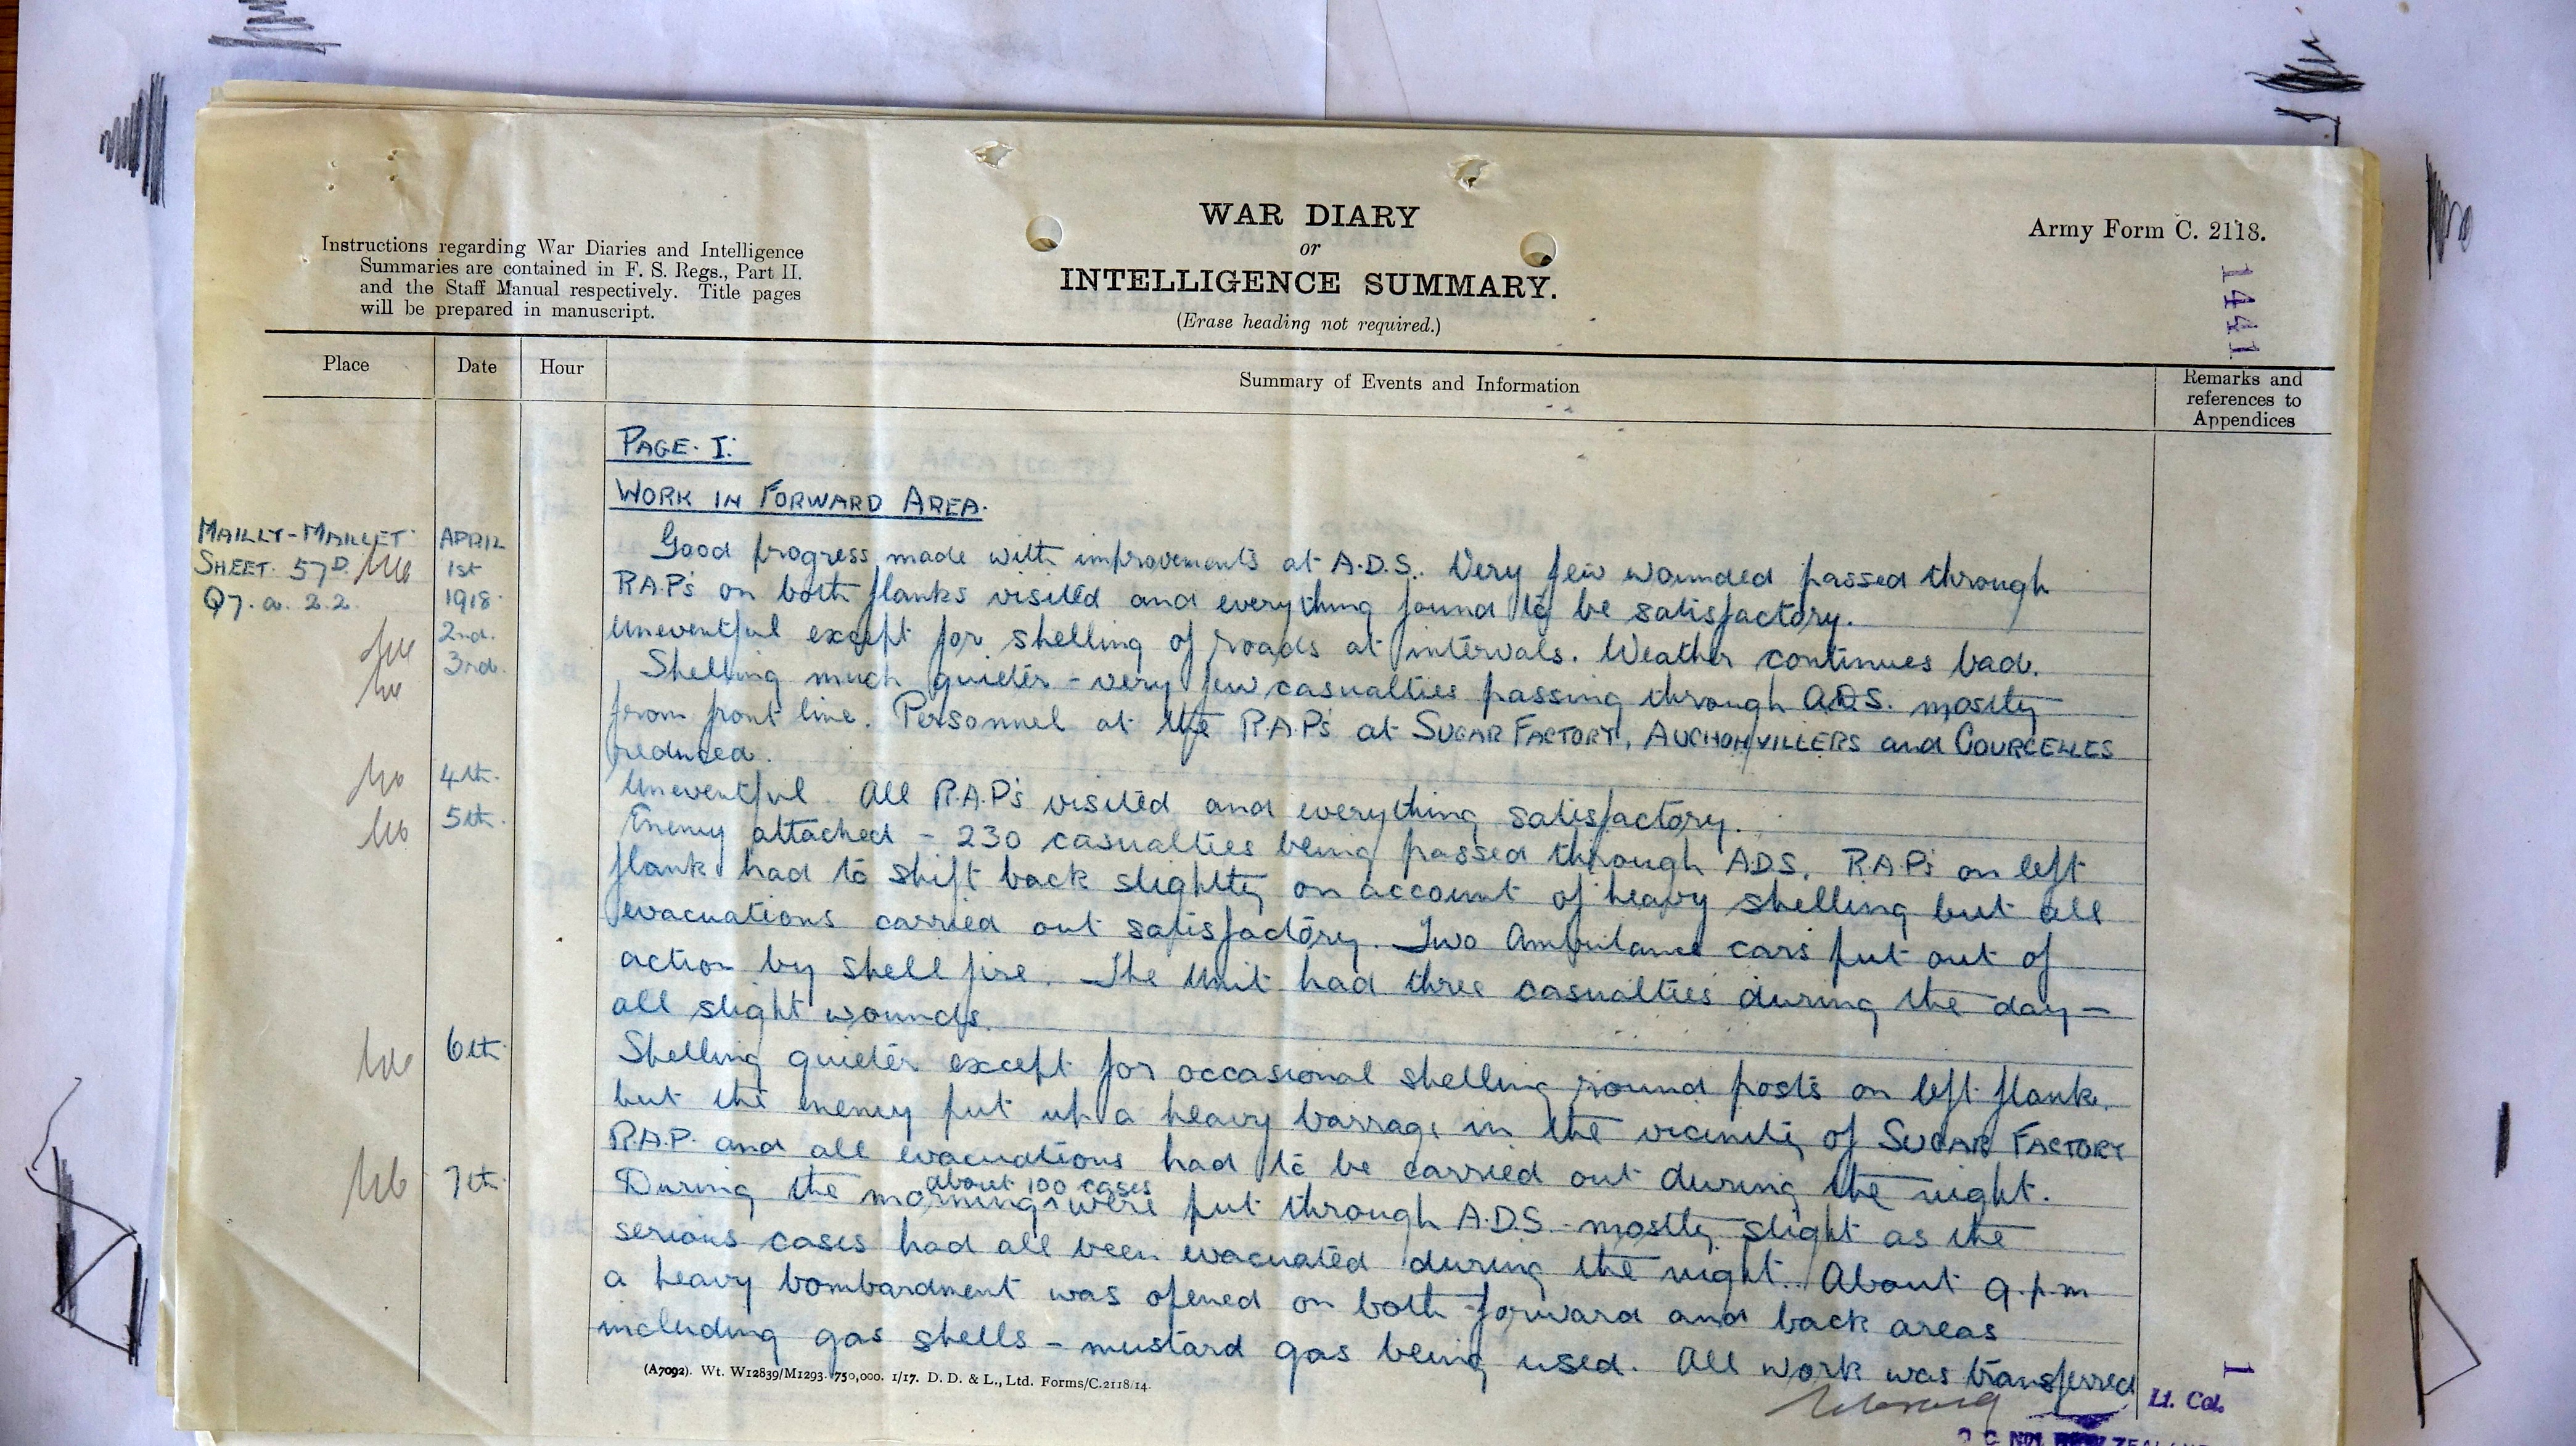 WAR DIARY
or
INTELLIGENCE SUMMARY.
(Erase heading not required.)
Army Form C. 2118.
1441
Instructions regarding War Diaries and Intelligence
Summaries are contained in F. S. Regs., Part II.
and the Staff Manual respectively. Title pages
will be prepared in manuscript.
Place
Date
Hour
Summary of Events and Information
Remarks and
references to
Appendices
PAGE. I.
WORK IN FORWARD AREA.
MAILLY-MAILLET
SHEET. 57D.
Q7. a. 2.2.
APRIL
1st
1918.
Good progress made with improvements at A.D.S.. Very few wounded passed through
R.A.P's on both flanks visited and everything found to be satisfactory.
2nd. Uneventful except for shelling of roads at intervals. Weather continues bad.
3rd. Shelling much quieter - very few casualties passing through A.D.S. mostly
from front line. Personnel at the R.A.P's at SUGAR FACTORY, AUCHONVILLERS and COURCELLES
reduced.
4th. Uneventful. All R.A.P's visited and everything satisfactory.
5th. Enemy attacked - 230 casualties being passed through ADS. R.A.P's on left
flank had to shift back slightly on account of heavy shelling but all
evacuations carried out satisfactory. Two Ambulance cars put out of
action by shell fire. The Unit had three casualties during the day -
all slight wounds.
6th. Shelling quieter except for occasional shelling round posts on left flank.
but the enemy put up a heavy barrage in the vicinity of SUGAR FACTORY
R.A.P. and all evacuations had to be carried out during the night.
7th. During the morning about 100 cases were put through A.D.S - mostly slight as the
serious cases had all been evacuated during the night. About 9.p.m
a heavy bombardment was opened on both forward and back areas
including gas shells - mustard gas being used. All work was transferred
(A7092). Wt. W12839/M1293. 750,000. 1/17. D. D. & L., Ltd. Forms/C.2118/14.
1
Lt. Col.